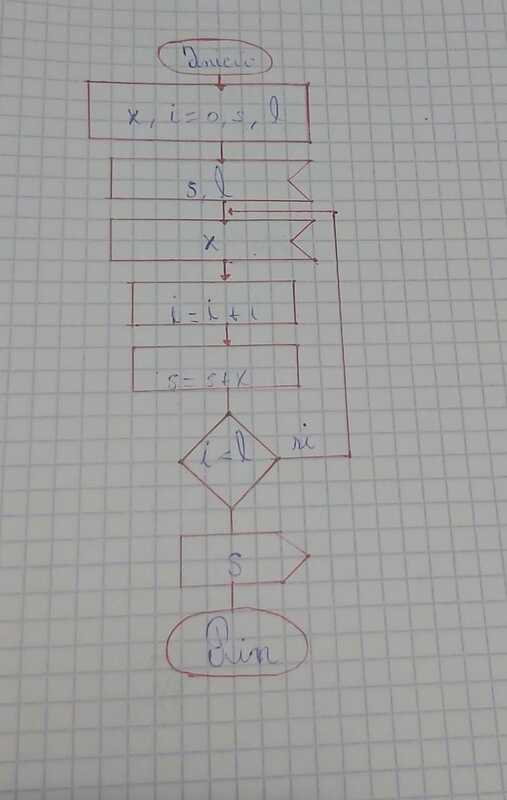 Inicio
x, i=0, s, l
s, l
x
i=i+1
s=s+x
i<l si
S
Fin